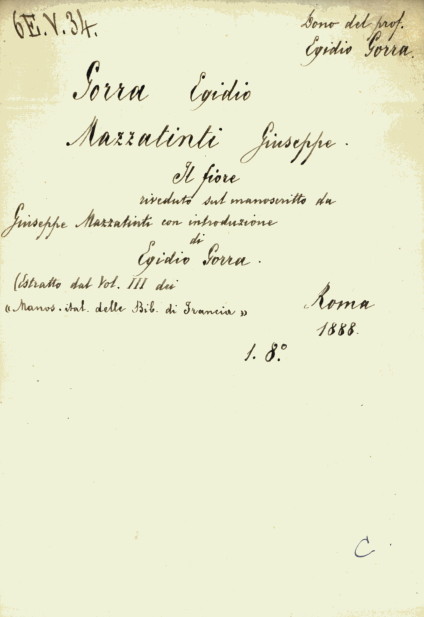 6E.V.34.
Dono del prof.
Egidio Gorra.
Gorra Egidio
Mazzatinti Giuseppe.
Il fiore
riveduto sul manoscritto da
Giuseppe Mazzatinti con introduzione
di
Egidio Gorra.
(Estratto dal Vol. III dei
« Manos. ital. delle Bib. di Francia »
Roma
1888.
1. 8.º
C